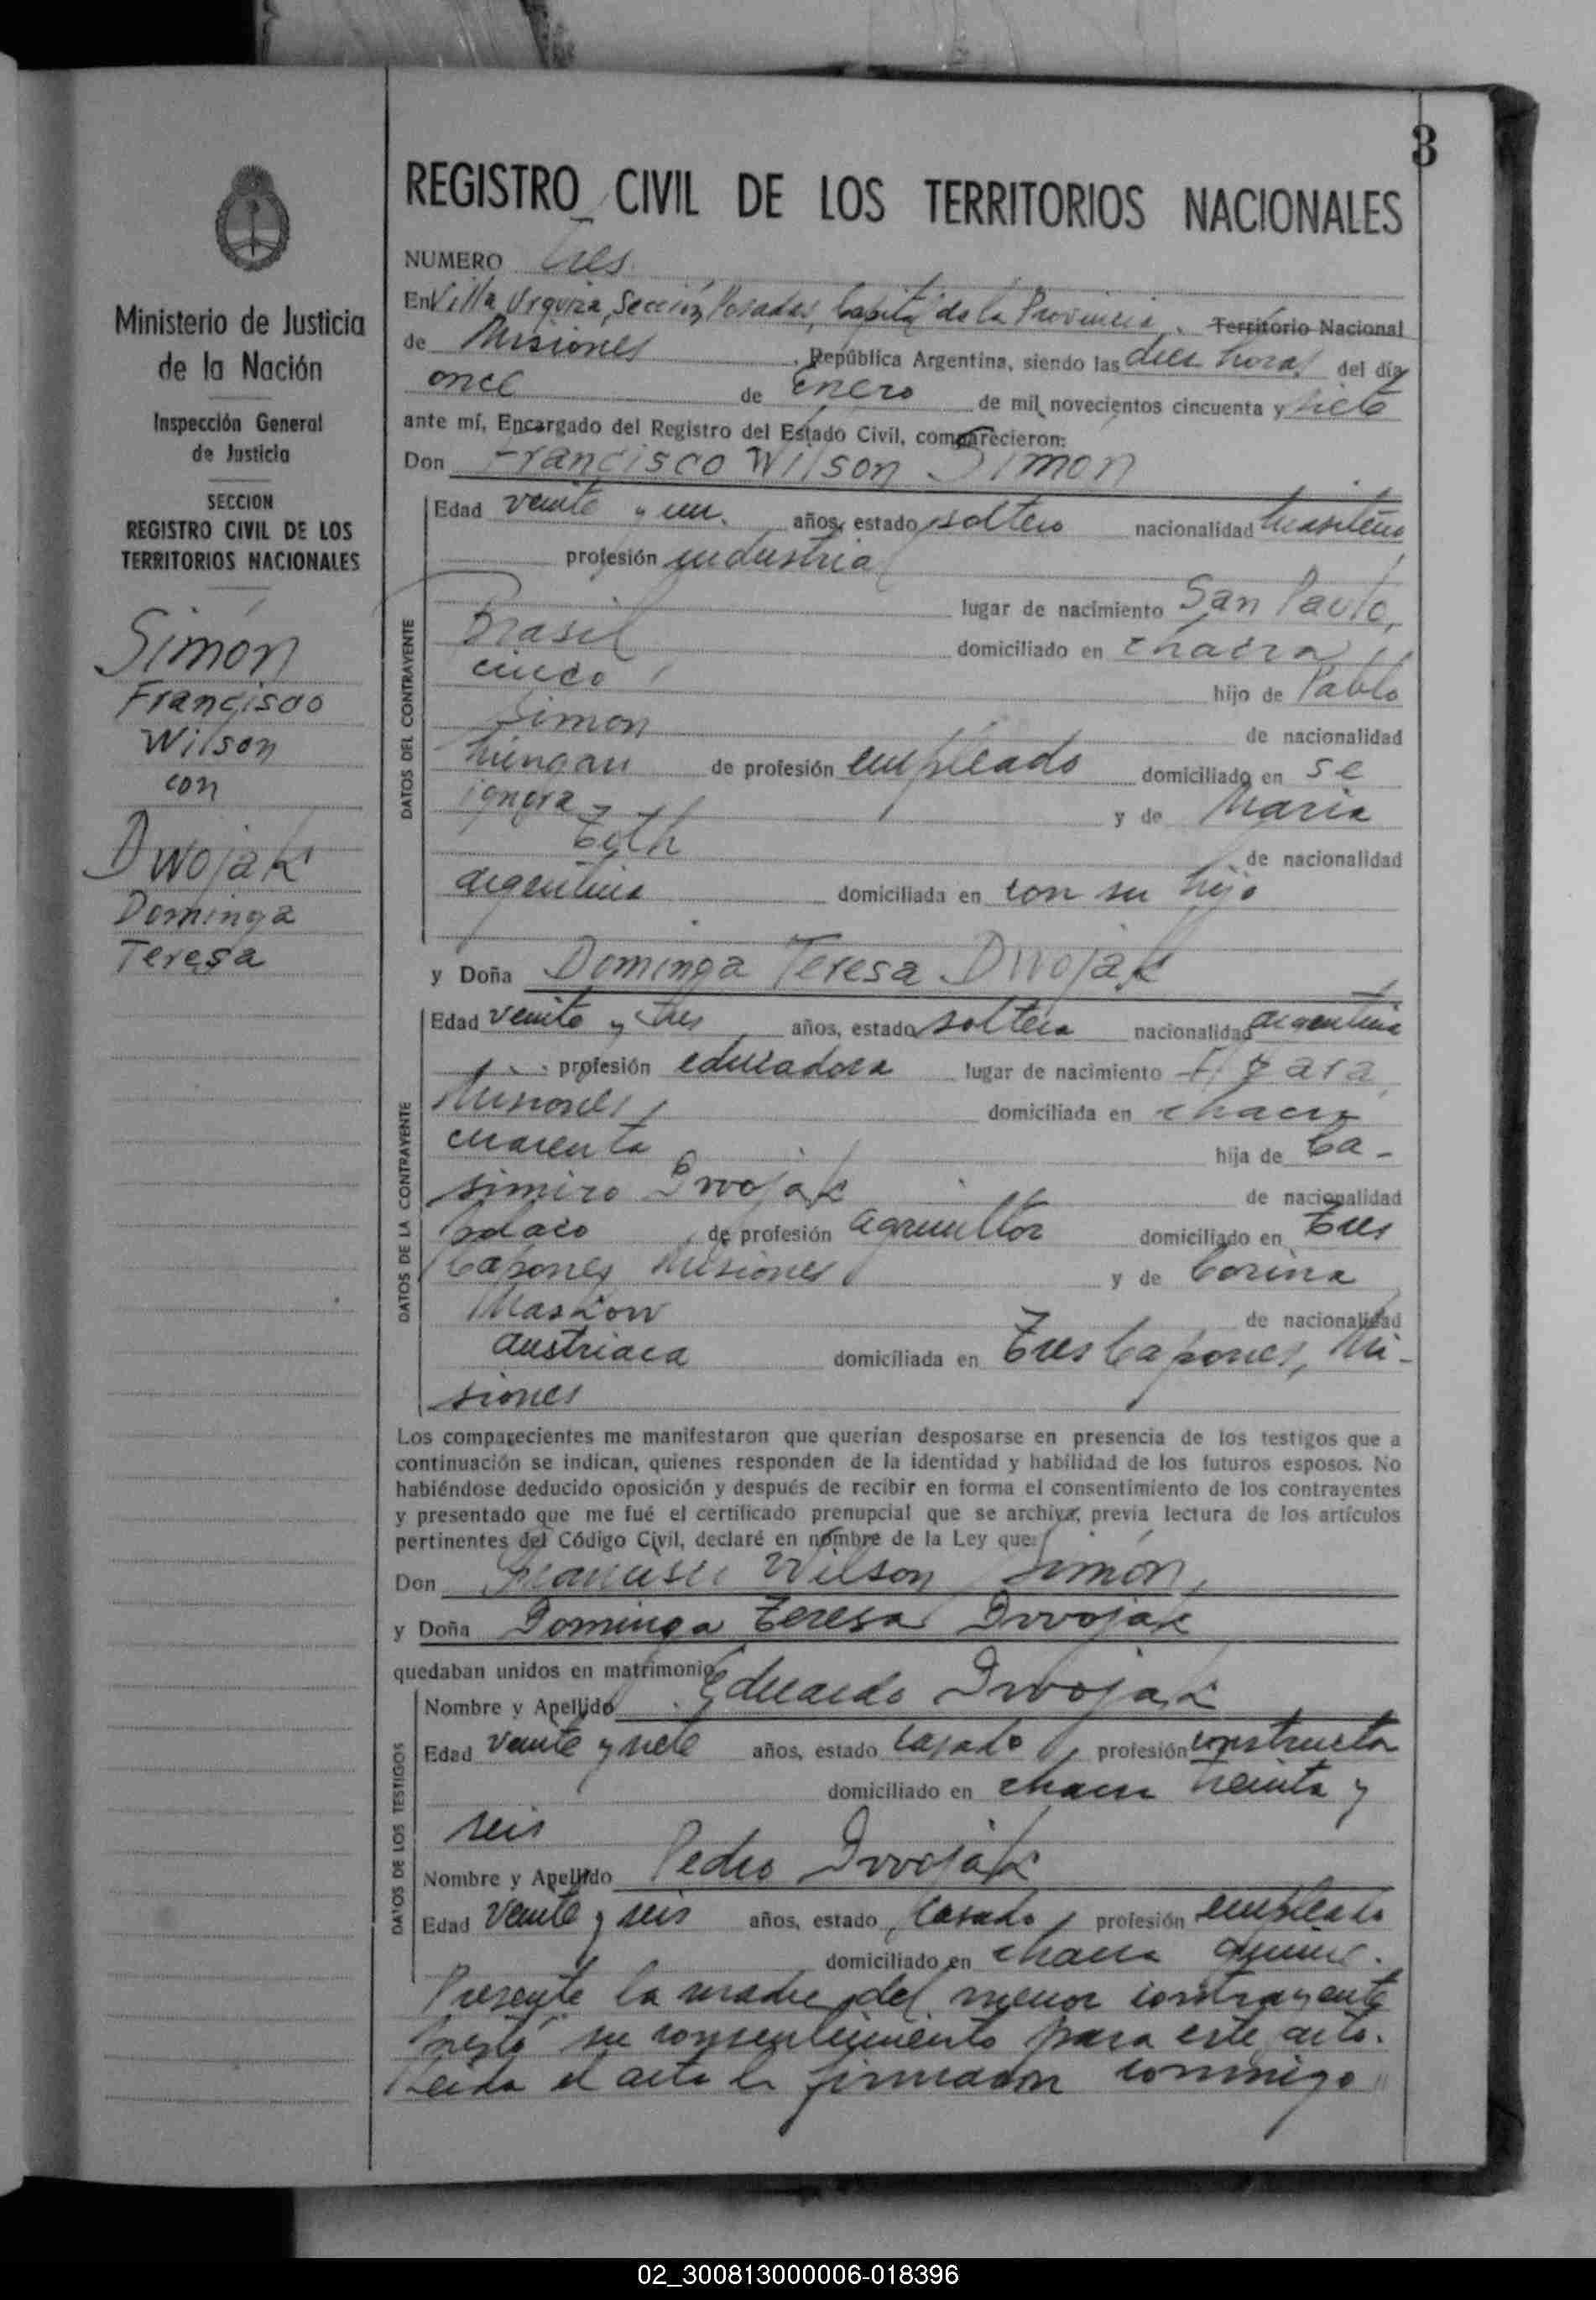 3
REGISTRO CIVIL DE LOS TERRITORIOS NACIONALES
NUMERO Tres
En Villa Urquiza, Sección Posadas, Capital de la Provincia, Territorio Nacional
de Misiones República Argentina, siendo las diez horas del día
once de Enero de mil novecientos cincuenta y siete
ante mí, Encargado del Registro del Estado Civil, comparecieron:
Don Francisco Wilson Simon
Edad veinte y un años, estado soltero nacionalidad brasileño
profesión industrial
lugar de nacimiento San Paulo,
Brasil domiciliado en chacra
cinco hijo de Pablo
Simon de nacionalidad
húngaro de profesión empleado domiciliado en se
ignora y de Maria
Toth de nacionalidad
argentina domiciliada en con su hijo
DATOS DEL CONTRAYENTE
y Doña Dominga Teresa Dwojak
Edad veinte y tres años, estado soltera nacionalidad argentina
profesión educadora lugar de nacimiento Azara
Misiones, domiciliada en chacra
cuarenta hija de Ca-
simiro Dwojak de nacionalidad
polaco de profesión agricultor domiciliado en Tres
Capones Misiones y de Corina
de nacionalidad
austriaca domiciliada en Tres Capones, Mi-
siones
DATOS DE LA CONTRAYENTE
Los comparecientes me manifestaron que querían desposarse en presencia de los testigos que a
continuación se indican, quienes responden de la identidad y habilidad de los futuros esposos. No
habiéndose deducido oposición y después de recibir en forma el consentimiento de los contrayentes
y presentado que me fué el certificado prenupcial que se archiva, previa lectura de los artículos
pertinentes del Código Civil, declaré en nombre de la Ley que:
Don Francisco Wilson Simón,
y Doña Dominga Teresa Dwojak
quedaban unidos en matrimonio.
Nombre y Apellido Eduardo Dwojak
Edad veinte y siete años, estado casado, profesión constructor
domiciliado en chacra treinta y
seis
Nombre y Apellido Pedro Dwojak
Edad veinte y seis años, estado casado, profesión empleado
domiciliado en chacra quince.
DATOS DE LOS TESTIGOS
Presente la madre del menor contrayente
prestó su consentimiento para este acto.
Leída el acta la firmaron conmigo
Ministerio de Justicia
de la Nación
Inspección General
de Justicia
SECCION
REGISTRO CIVIL DE LOS
TERRITORIOS NACIONALES
Simón
Francisco
Wilson
con
Dwojak
Dominga
Teresa
02_300813000006-018396